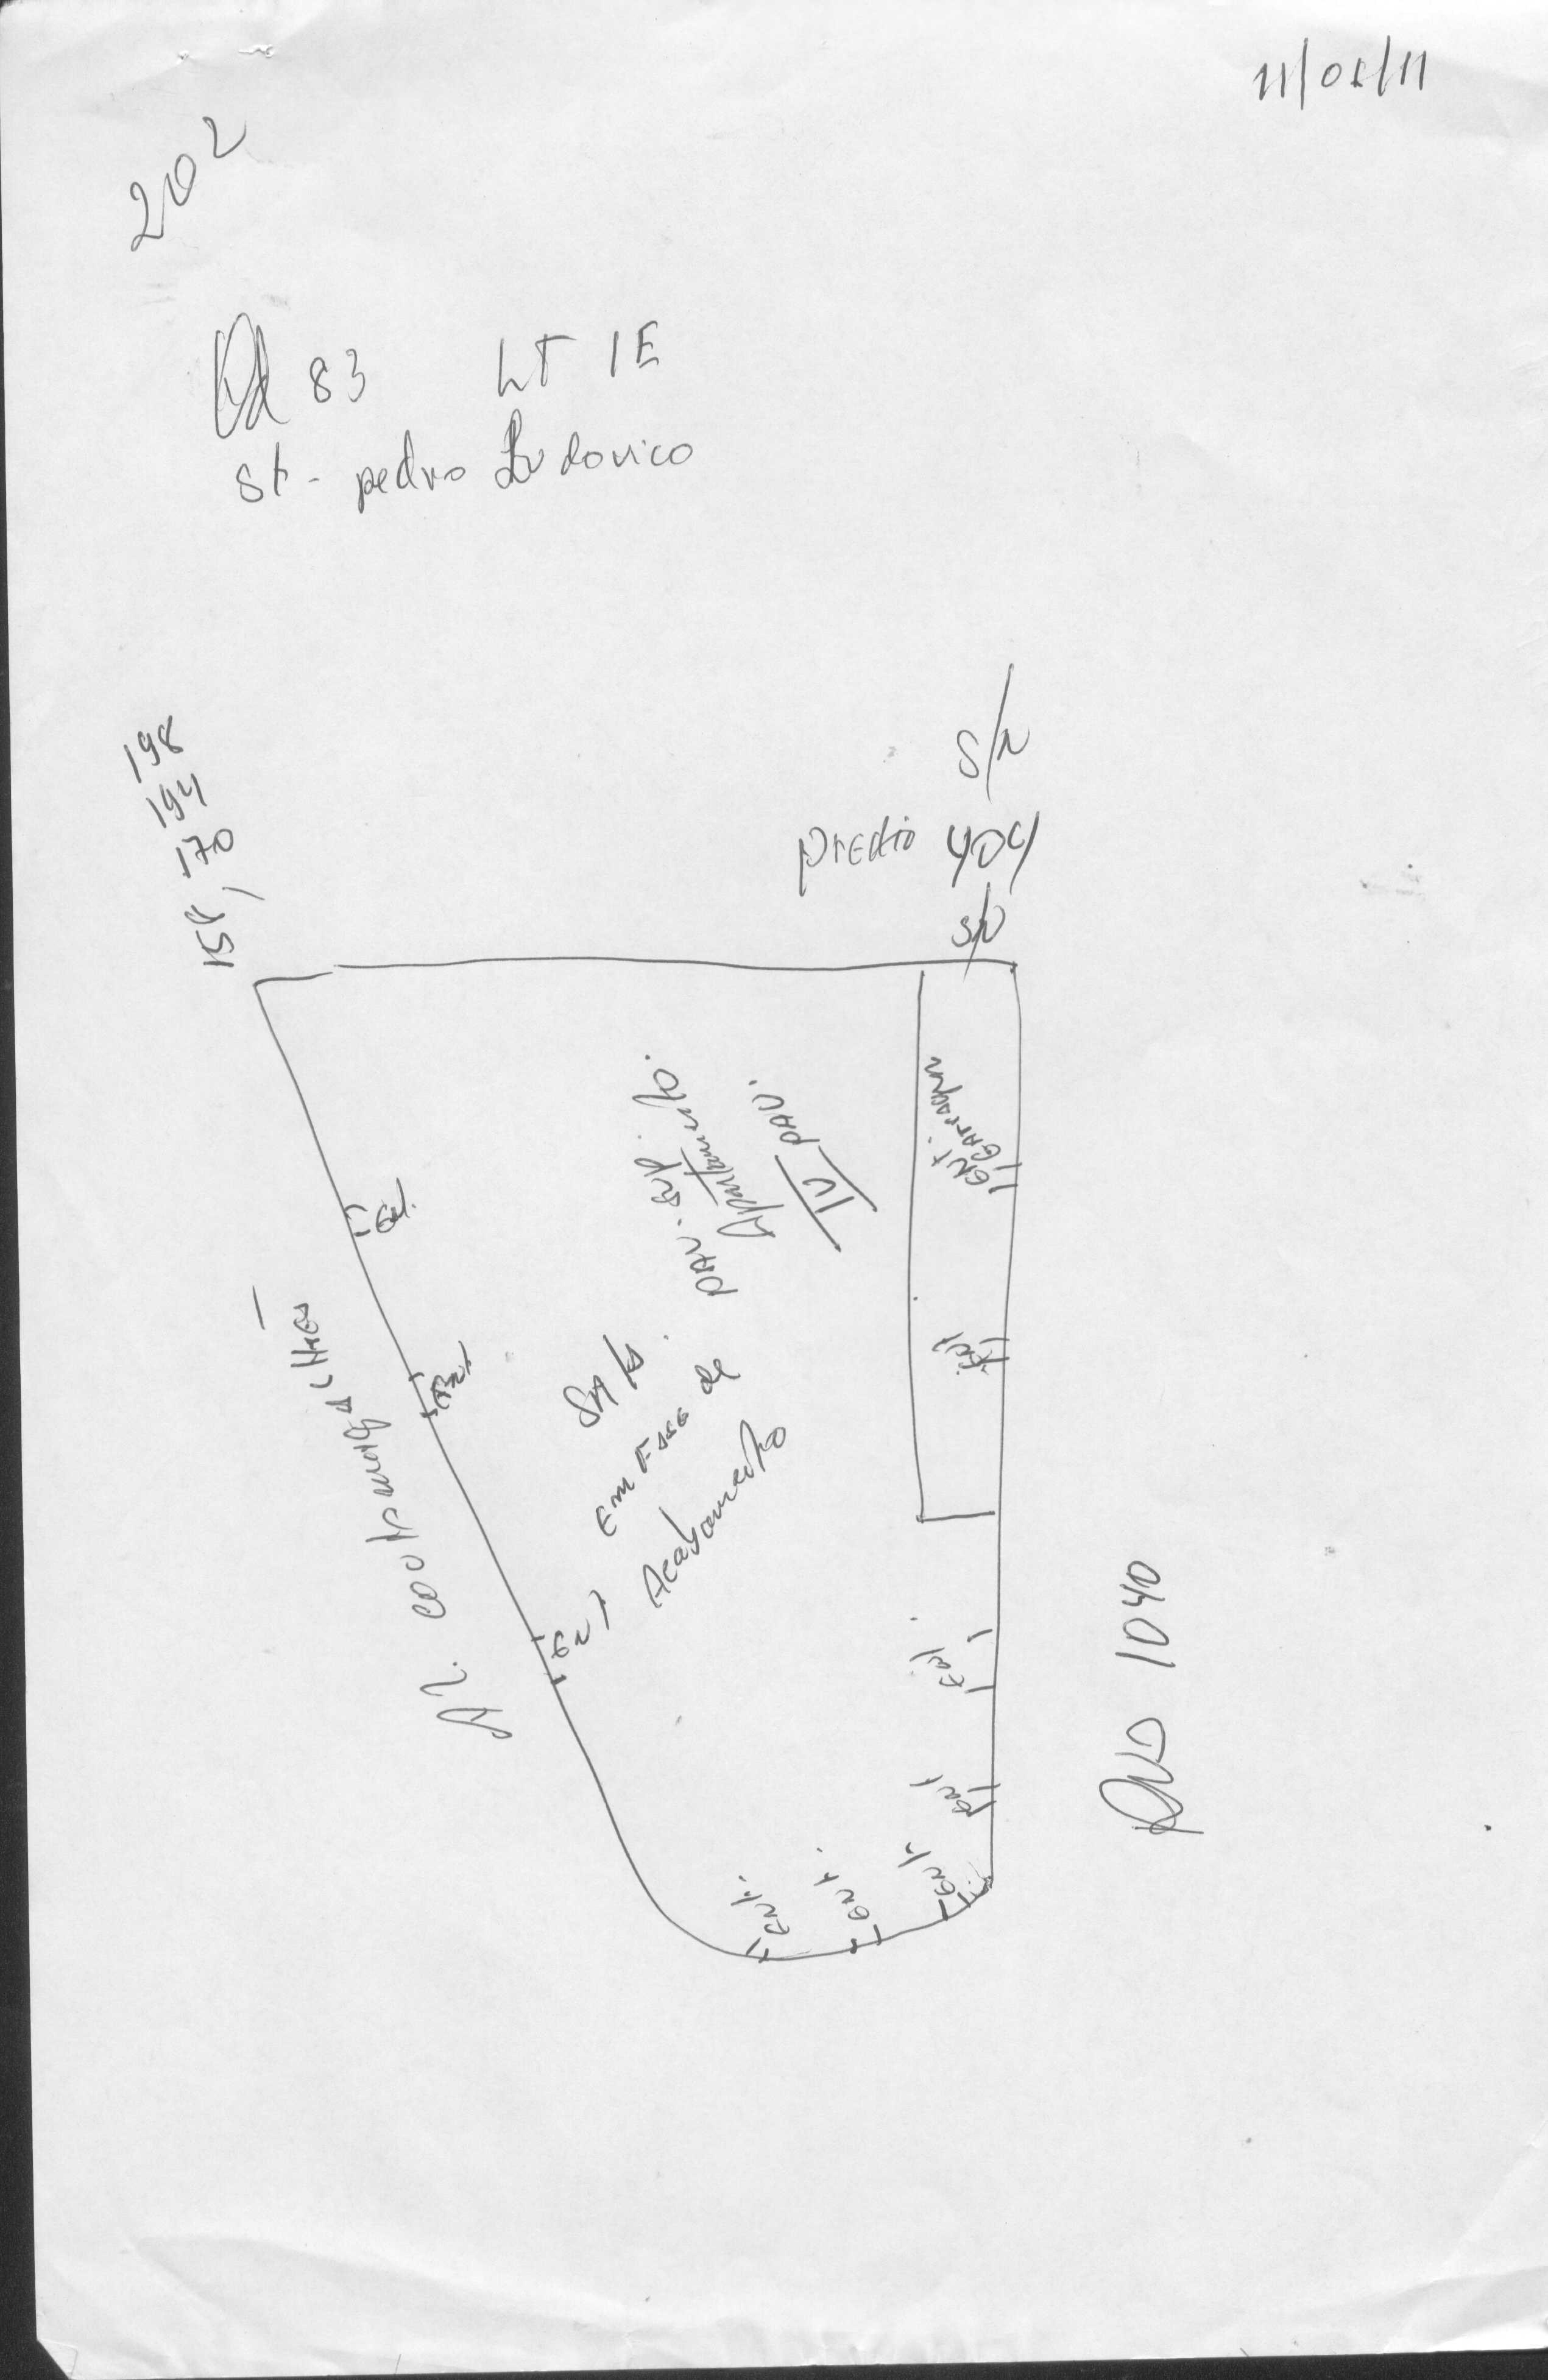 11/01/11
202
Qd 83 LT 1E
St - pedro Ludovico
198
194
158, 170
S/N
predio 404
S/N
pav. sup.
Apartamento.
IV pav.
Ent. Garragem
Ent.
Ent
Ent
Sala
em Fase de
Acabamento
Ent
Ent.
Ent
Ent.
Ent.
Ent.
Rua 1040